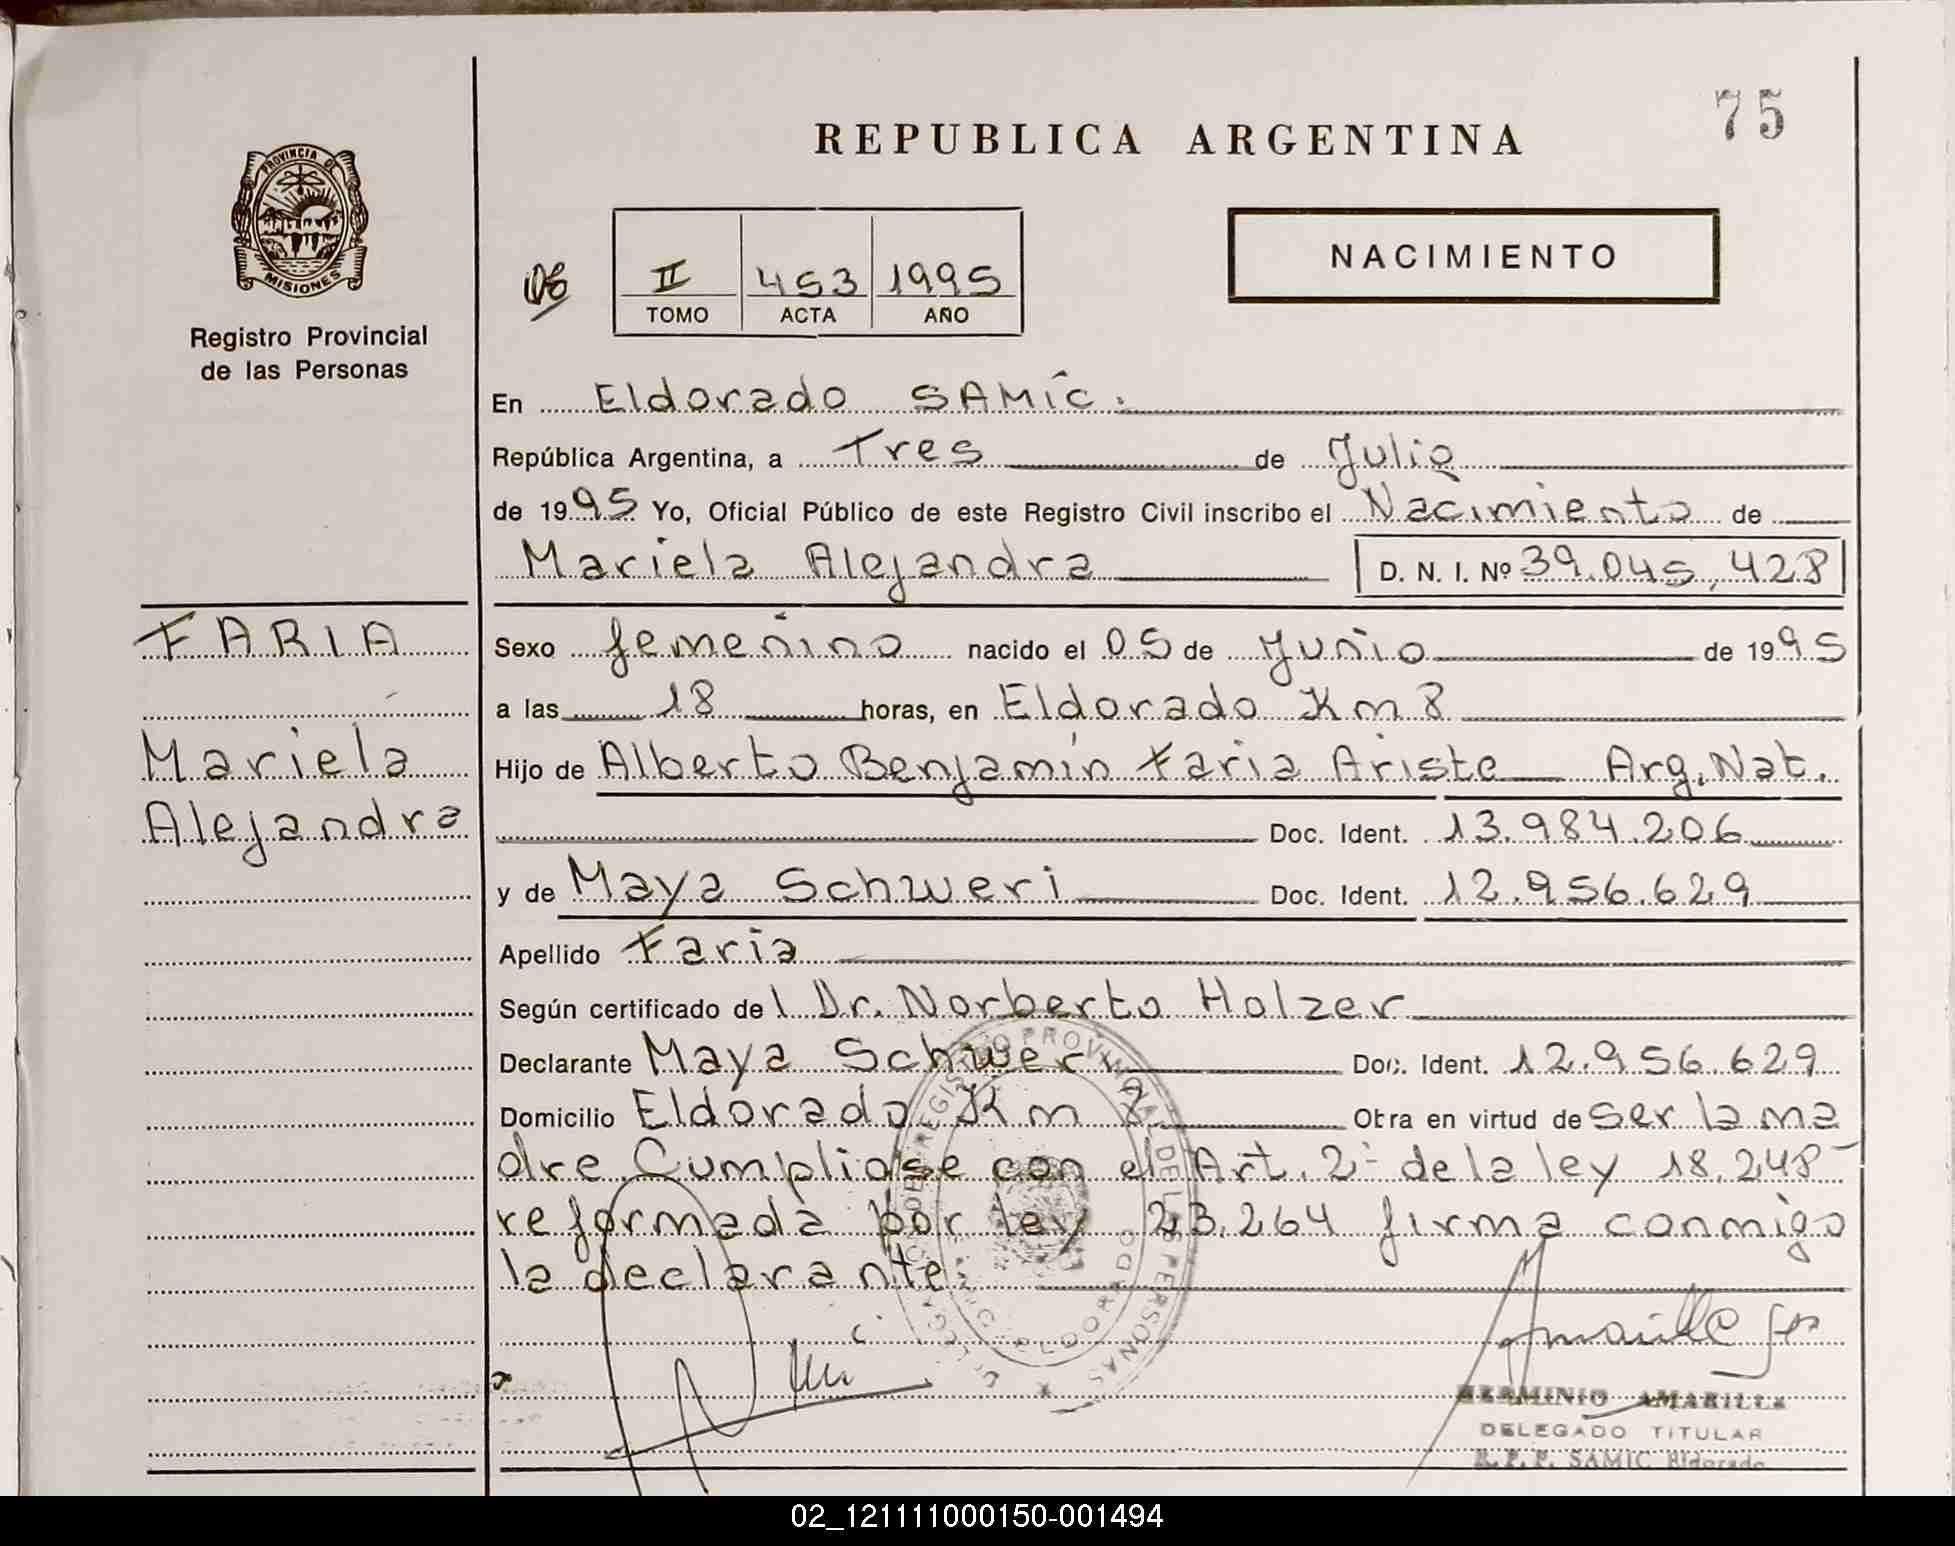 75
REPUBLICA ARGENTINA
PROVINCIA DE
MISIONES
Registro Provincial
de las Personas
NACIMIENTO
II 453 1995
TOMO ACTA AÑO
En Eldorado SAMIC.
República Argentina, a Tres de Julio
de 1995 Yo, Oficial Público de este Registro Civil inscribo el Nacimiento de
Mariela Alejandra D. N. I. Nº 39.045.428
FARIA
Mariela
Alejandra
Sexo femenino nacido el 05 de Junio de 1995
a las 18 horas, en Eldorado Km 8
Hijo de Alberto Benjamin Faria Ariste Arg. Nat.
Doc. Ident. 13.984.206
y de Maya Schweri Doc. Ident. 12.956.629
Apellido Faria
Según certificado del Dr. Norberto Holzer
Declarante Maya Schweri Doc. Ident. 12.956.629
Domicilio Eldorado Km 8 Obra en virtud de ser la ma
dre Cumpliose con el Art. 2- de la ley 18.248-
reformada por ley 23.264 firma conmigo
la declarante.
REGISTRO PROVINCIAL DE LAS PERSONAS
ELDORADO
HERMINIO AMARILLA
DELEGADO TITULAR
R. P. P. SAMIC Eldorado
02_121111000150-001494